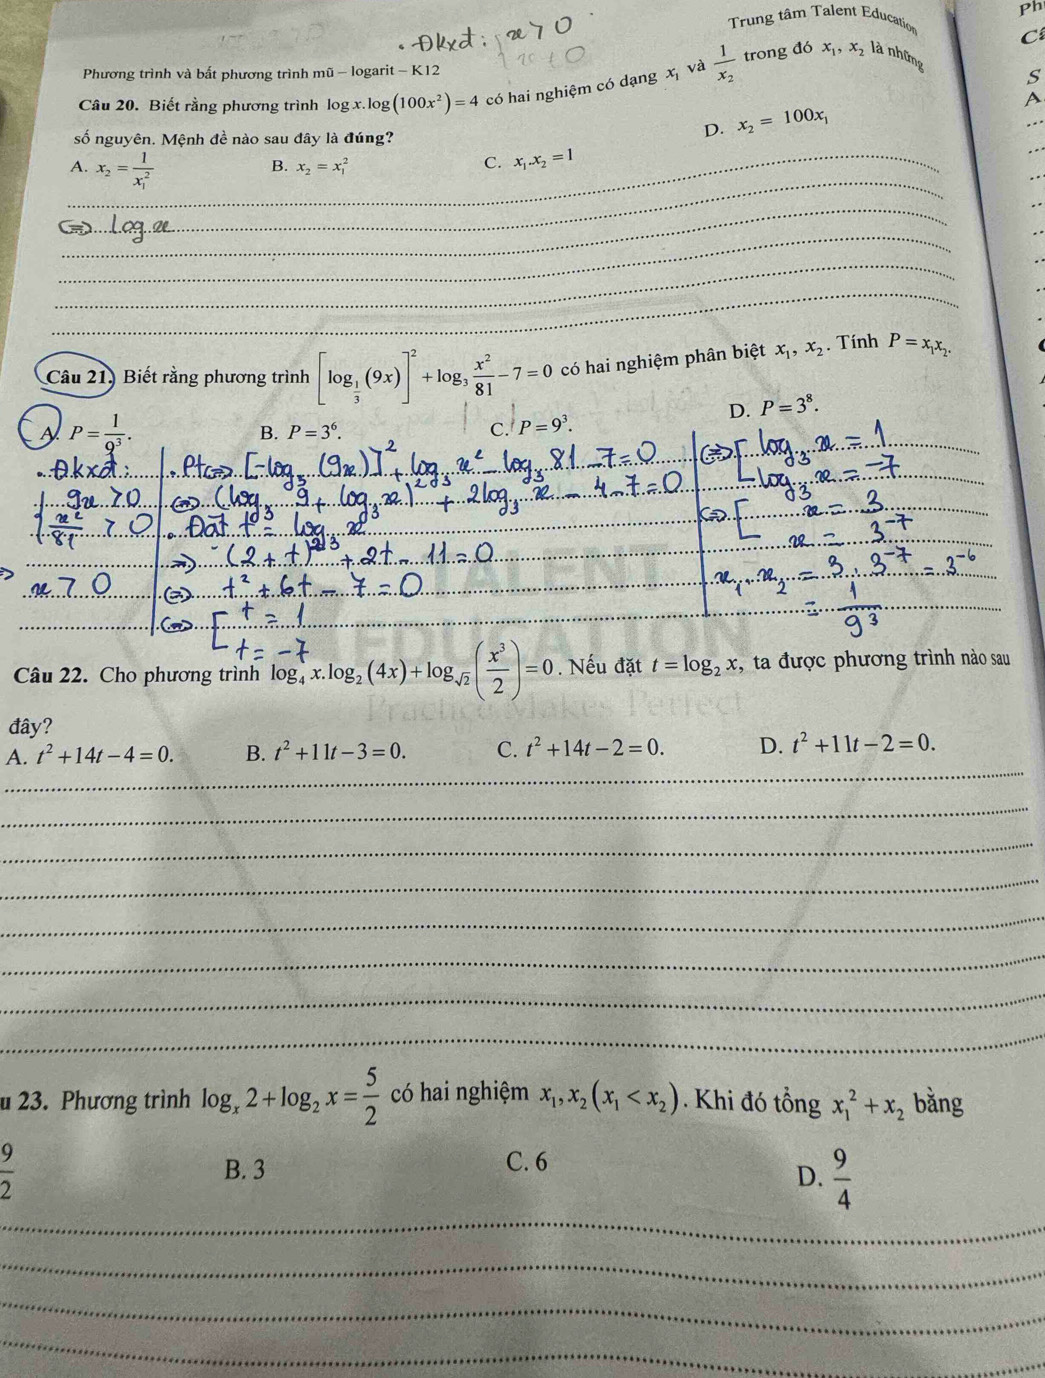 Trung tâm Talent Education
Ph
• Đkxđ: x > 0
Phương trình và bất phương trình mũ – logarit – K12
Câu 20. Biết rằng phương trình log x.log(100x²) = 4 có hai nghiệm có dạng x₁ và 1/x₂ trong đó x₁, x₂ là những
số nguyên. Mệnh đề nào sau đây là đúng?
A. x₂ = 1/x₁²  B. x₂ = x₁²  C. x₁.x₂ = 1  D. x₂ = 100x₁
S
A
⇔ log x
Câu 21. Biết rằng phương trình [log_{1/3}(9x)]² + log₃ x²/81 − 7 = 0 có hai nghiệm phân biệt x₁, x₂. Tính P = x₁x₂.
A. P = 1/9³.  B. P = 3⁶.  C. P = 9³.  D. P = 3⁸.
• Đkxđ:
{ 9x > 0
x²/81 > 0
⇒ x > 0
• Pt ⇔ [−log₃ (9x)]² + log₃ x² − log₃ 81 − 7 = 0
⇔ (log₃ 9 + log₃ x)² + 2log₃ x − 4 − 7 = 0
• Đặt t = log₃ x
⇒ (2 + t)² + 2t − 11 = 0
⇔ t² + 6t − 7 = 0
⇔ [ t = 1
t = −7
⇔ [ log₃ x = 1
log₃ x = −7
⇔ [ x = 3
x = 3⁻⁷
x₁.x₂ = 3.3⁻⁷ = 3⁻⁶
= 1/9³
TALENT
EDUCATION
Practice Makes Perfect
Câu 22. Cho phương trình log₄ x.log₂(4x) + log_{√2}(x³/2) = 0. Nếu đặt t = log₂ x, ta được phương trình nào sau
đây?
A. t² + 14t − 4 = 0.  B. t² + 11t − 3 = 0.  C. t² + 14t − 2 = 0.  D. t² + 11t − 2 = 0.
u 23. Phương trình logₓ 2 + log₂ x = 5/2 có hai nghiệm x₁, x₂ (x₁ < x₂). Khi đó tổng x₁² + x₂ bằng
9/2  B. 3  C. 6  D. 9/4